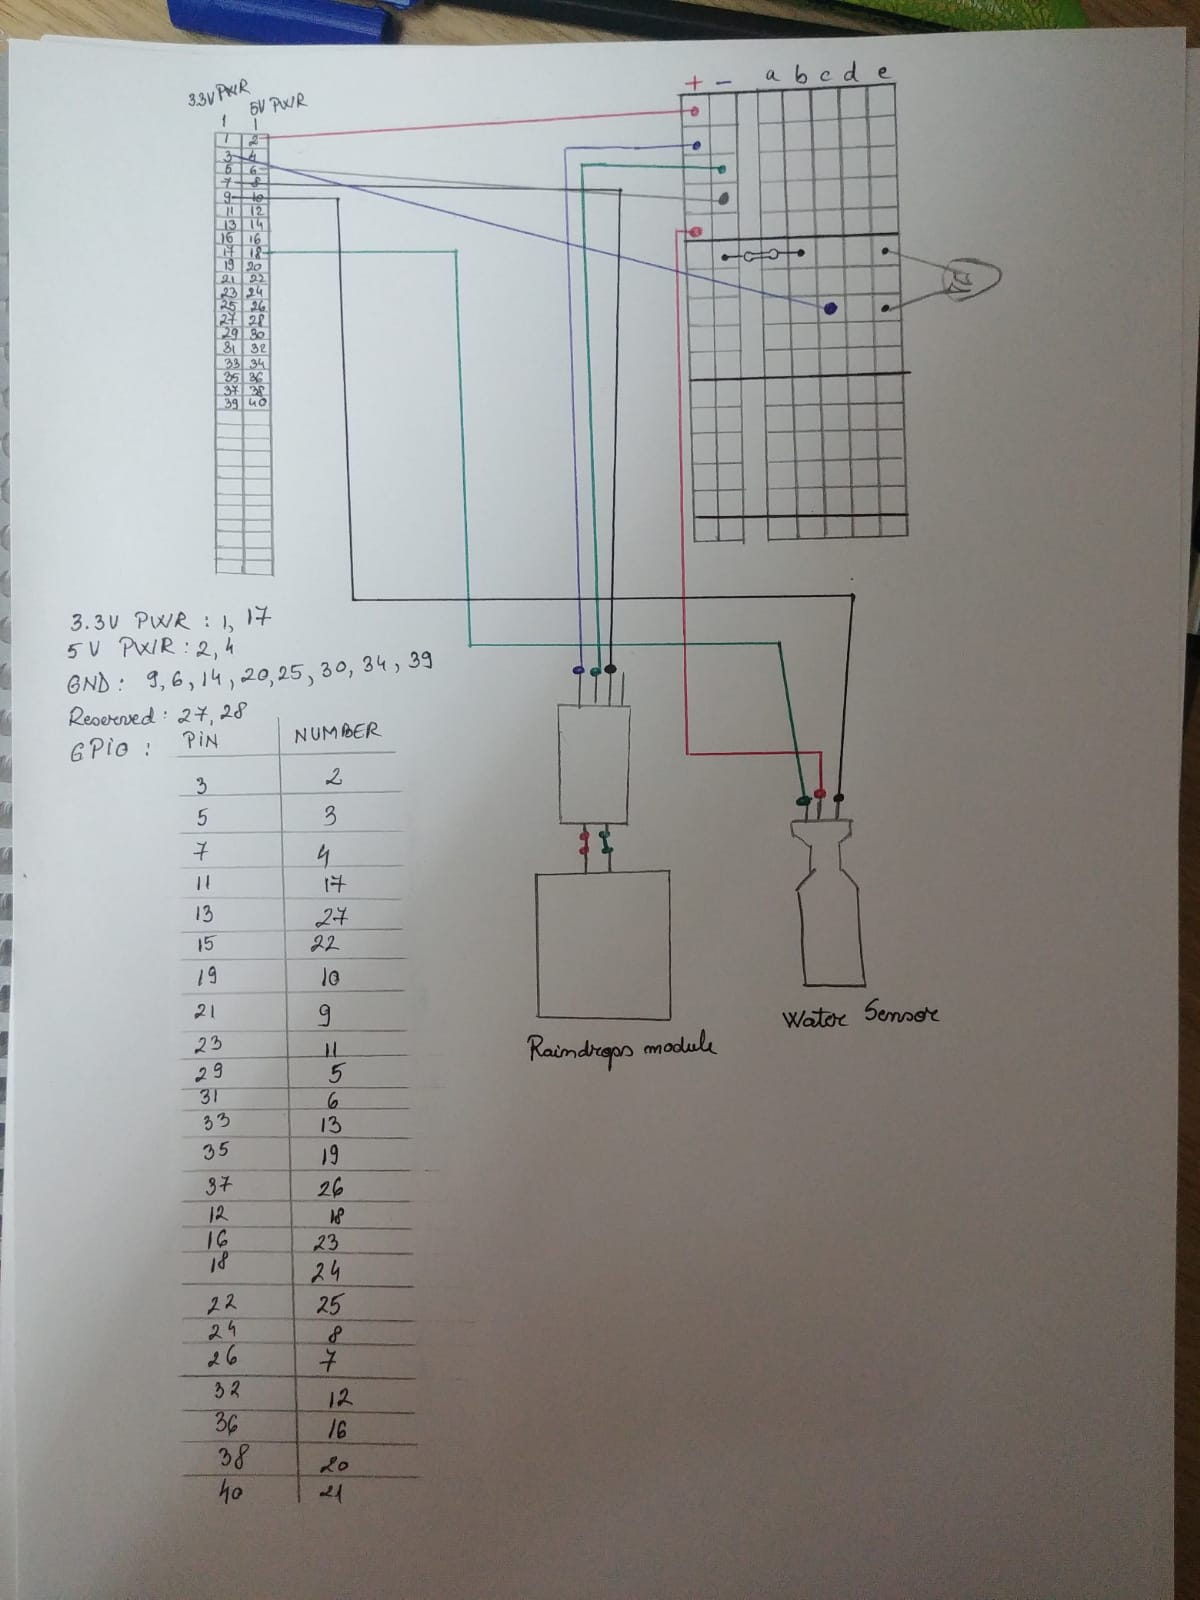 3.3V PWR
5V PWR
1 1
1 2
3 4
5 6
7 8
9 10
11 12
13 14
16 16
17 18
19 20
21 22
23 24
25 26
27 28
29 30
31 32
33 34
35 36
37 38
39 40
+ - a b c d e
3.3V PWR : 1, 17
5V PWR : 2, 4
GND : 9, 6, 14, 20, 25, 30, 34, 39
Reserved : 27, 28
GPiO : PiN NUMBER
3 2
5 3
7 4
11 17
13 27
15 22
19 10
21 9
23 11
29 5
31 6
33 13
35 19
37 26
12 18
16 23
18 24
22 25
24 8
26 7
32 12
36 16
38 20
40 21
Raindrops module
Water Sensor